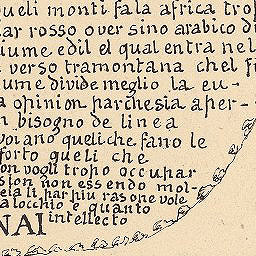 queli monti fa la africa trop
ar rosso over sino arabico di
iume edil el qual entra nel
verso tramontana chel fi
ume divide meglio la eu-
a opinion par che sia aper-
n bisogno de linea
voiano queli che fano le
forto queli che
non vogli tropo occupar
sion non essendo mol-
eia li par piu rasone vole
a locchio e quanto
intellecto
NAI